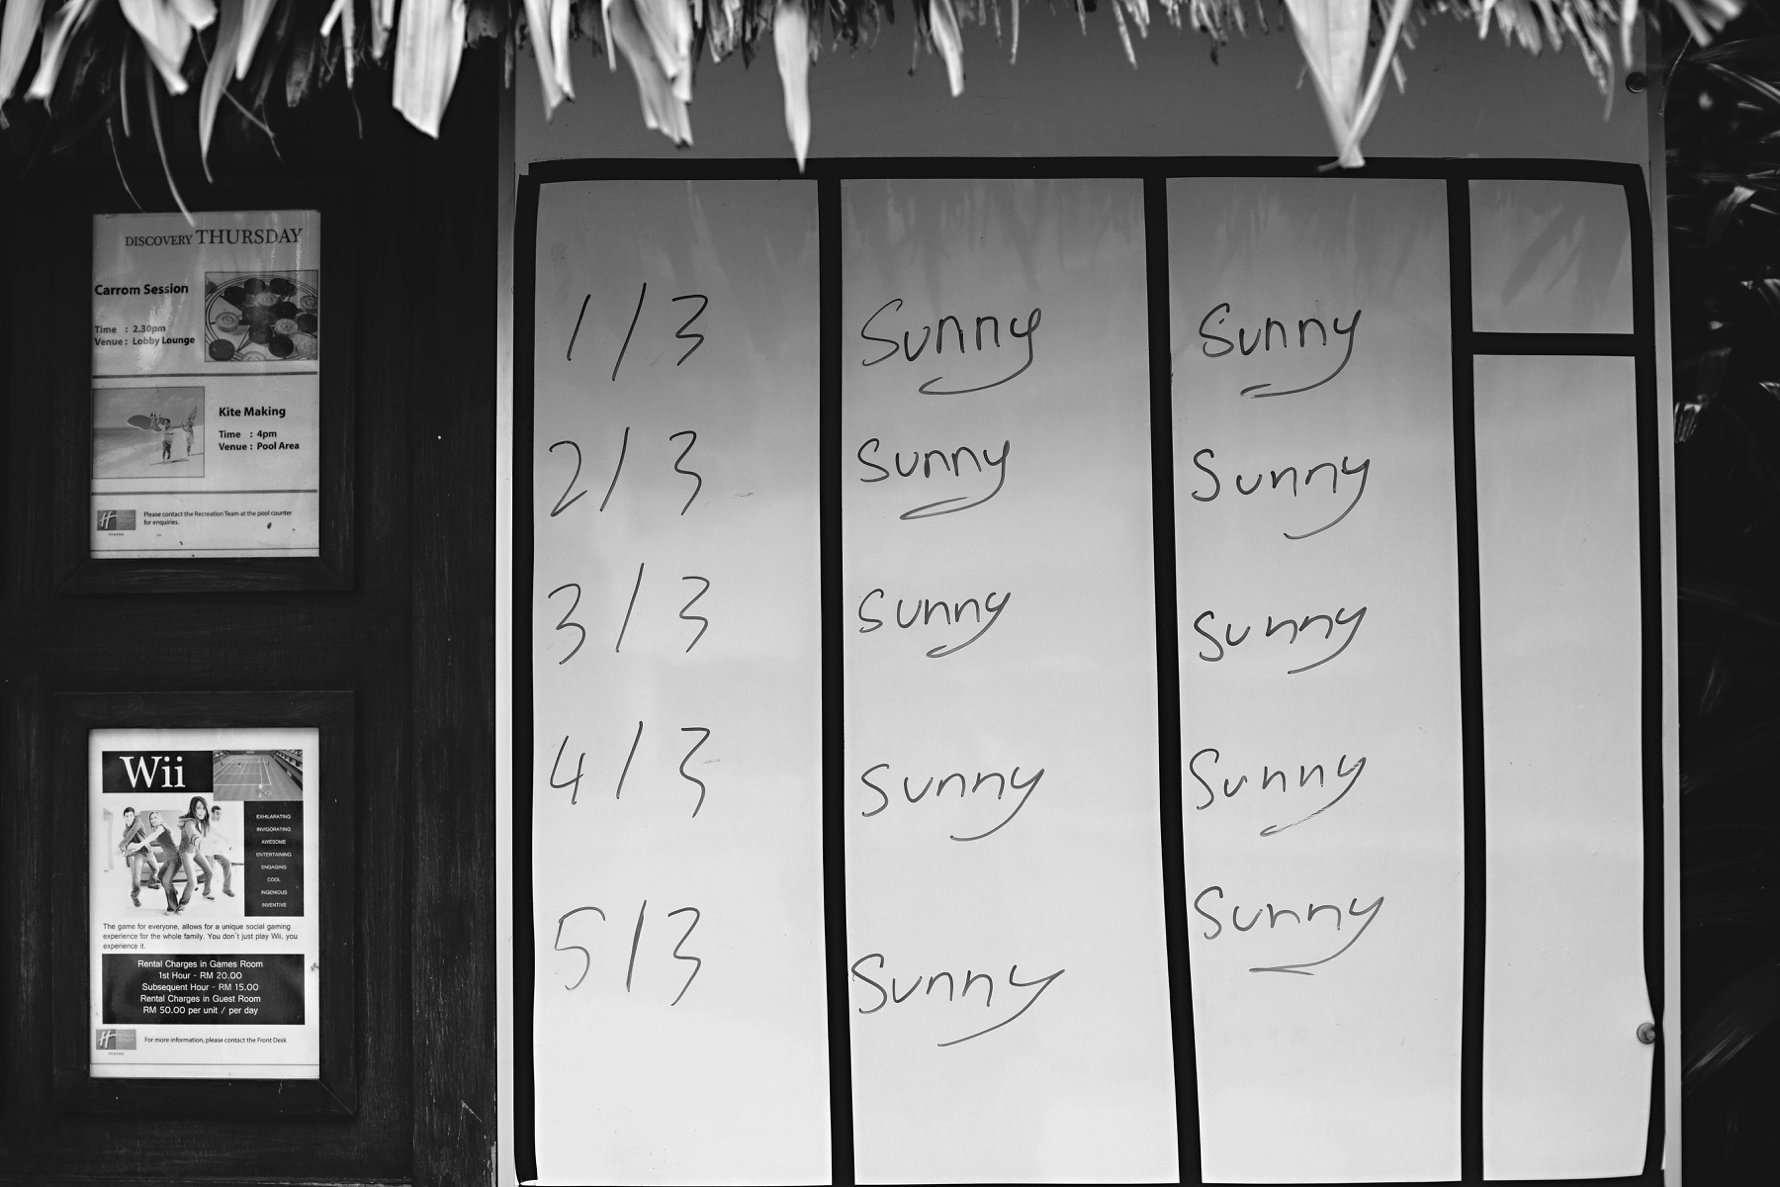 DISCOVERY THURSDAY
Carrom Session
Time : 2.30pm
Venue : Lobby Lounge
Kite Making
Time : 4pm
Venue : Pool Area
Please contact the Recreation Team at the pool counter
for enquiries.
Wii
EXHILARATING
INVIGORATING
AWESOME
ENTERTAINING
ENGAGING
COOL
INGENIOUS
INVENTIVE
The game for everyone, allows for a unique social gaming
experience for the whole family. You don't just play Wii, you
experience it.
Rental Charges in Games Room
1st Hour - RM 20.00
Subsequent Hour - RM 15.00
Rental Charges in Guest Room
RM 50.00 per unit / per day
For more information, please contact the Front Desk
1/3 Sunny Sunny
2/3 Sunny Sunny
3/3 Sunny Sunny
4/3 Sunny Sunny
5/3 Sunny Sunny